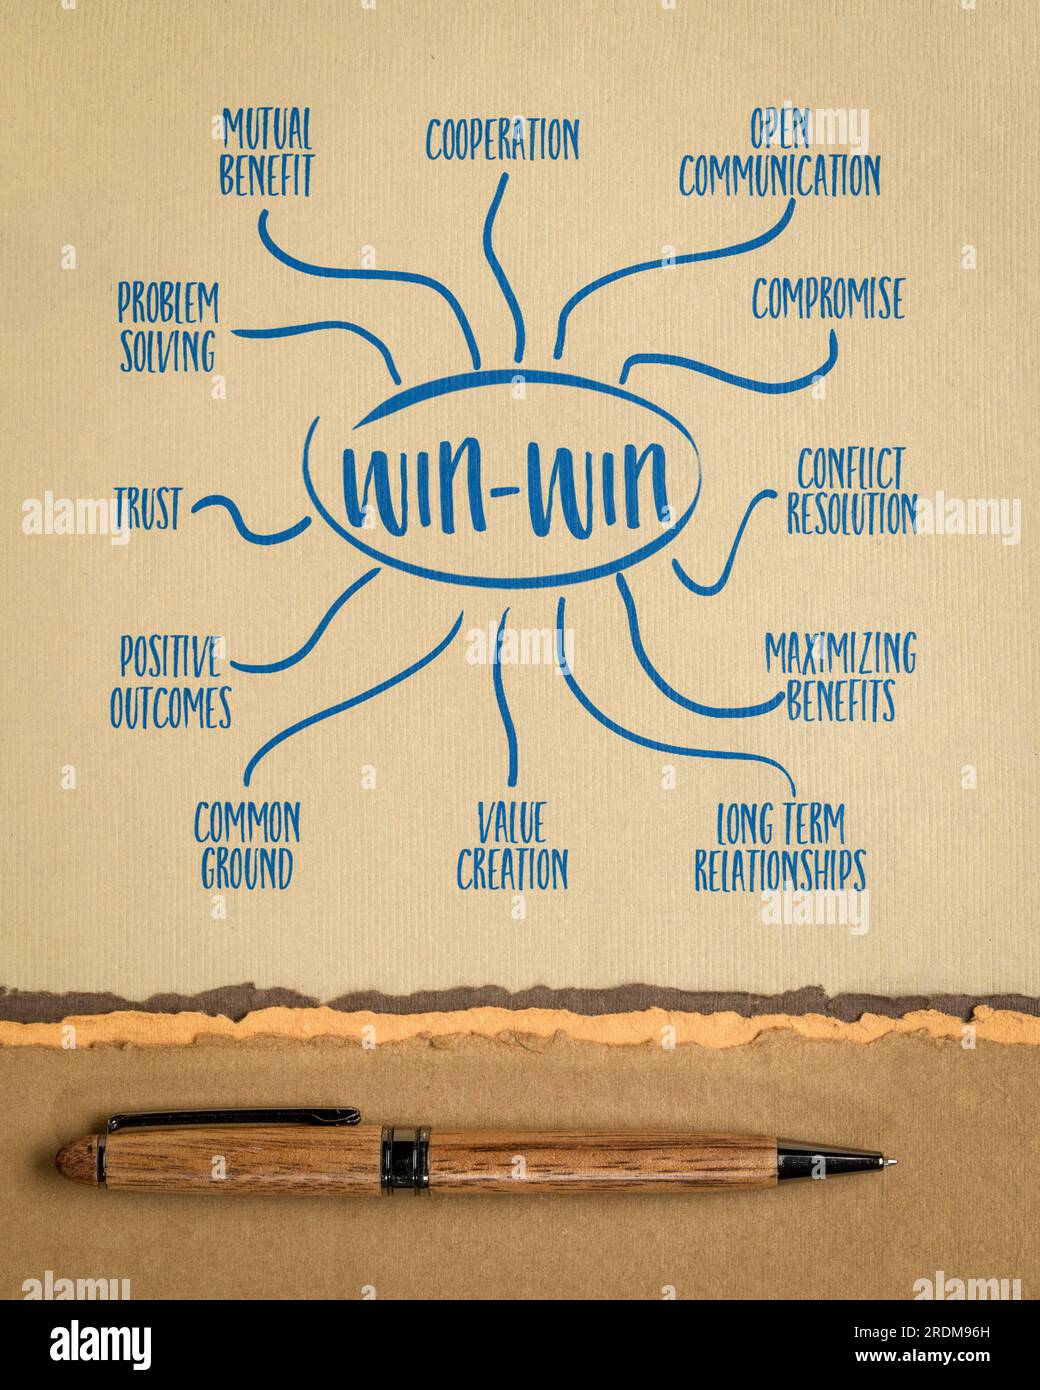 MUTUAL
BENEFIT
COOPERATION
OPEN
COMMUNICATION
PROBLEM
SOLVING
COMPROMISE
WIN-WIN
TRUST
CONFLICT
RESOLUTION
POSITIVE
OUTCOMES
MAXIMIZING
BENEFITS
COMMON
GROUND
VALUE
CREATION
LONG TERM
RELATIONSHIPS
alamy
alamy
alamy
alamy
alamy
alamy
alamy
alamy
alamy
alamy
Image ID: 2RDM96H
www.alamy.com